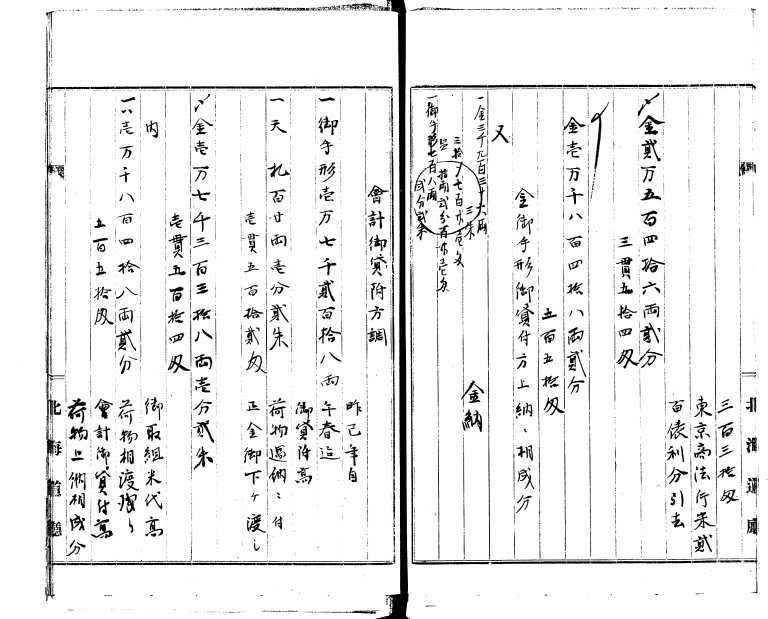 三百三拾匁
東京商法行米貳
百俵利分引去
〆金貳万五百四拾六両貳分
三貫五拾四匁
金壱万千八百四拾八両貳分
五百五拾匁
金御手形御貸付方上納ニ相成分
又
金納
一金三千九百三十六両
三朱
三拾〆七百弐壱匁
一御手形七百八両
貳分貳朱
会計御貸附方調
昨巳年自
一御手形壱万七千貳百拾八両午春迄
御貸附高
一天札百廿両壱分貳朱荷物過納ニ付
壱貫五百拾貳匁正金御下ケ渡し
〆金壱万七千三百三拾八両壱分貳朱
壱貫五百拾四匁
内御取組米代高
一六壱万千八百四拾八両貳分荷物相渡
五百五拾匁会計御貸付高
荷物上納相成分
北海道